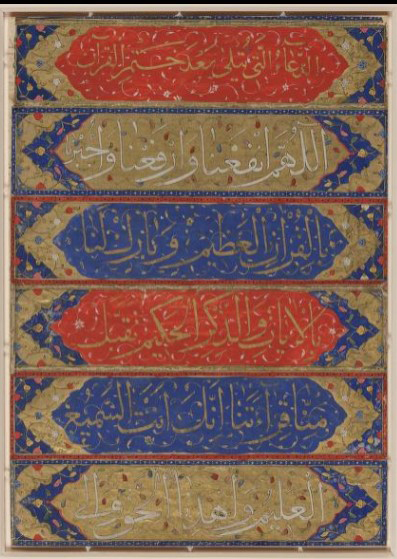 الدعاء التي تتلى بعد ختم القرآن
اللهم انفعنا وارفعنا
بالقرآن العظيم وبارك لنا
بالآيات والذكر الحكيم تقبل
منا قراءتنا انك انت السميع
العليم واهدنا الى الحق والى